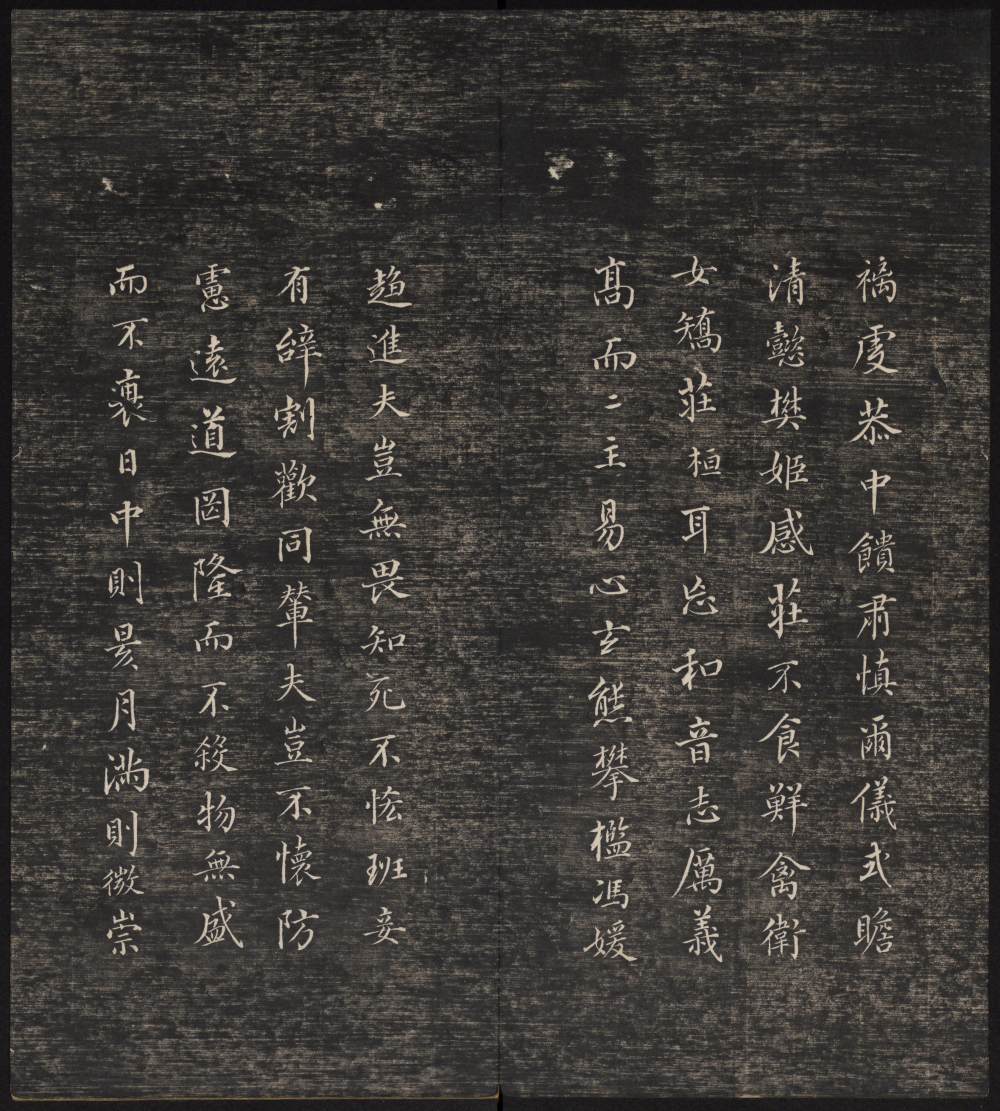 褵虔恭中饋肅慎爾儀式瞻
清懿樊姬感莊不食鮮禽衛
女矯莊桓耳忘和音志厲義
髙而二主易心玄熊攀檻馮媛
趍進夫豈無畏知死不恡班妾
有辝割歡同輦夫豈不懷防
慮遠道罔隆而不殺物無盛
而不衰日中則昃月滿則微崇